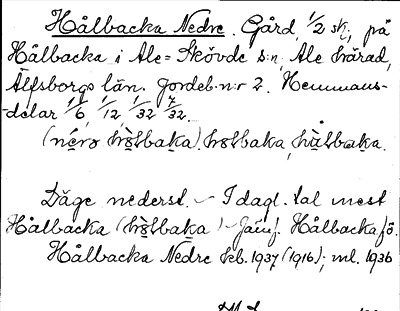 Hålbacka Nedre. Gård, 1/2 sk; på
Hålbacka i Ale-Skövde s:n, Ale härad,
Älfsborgs län. Jordeb.n:r 2. Hemmans-
-delar 1/6, 1/12, 1/32 7/32.
hɷlbaka,
Läge nederst. - I dagl. tal mest
Hålbacka - Jämf. Hålbacka fö.
Hålbacka Nedre keb. 1937 (1916); ml. 1936